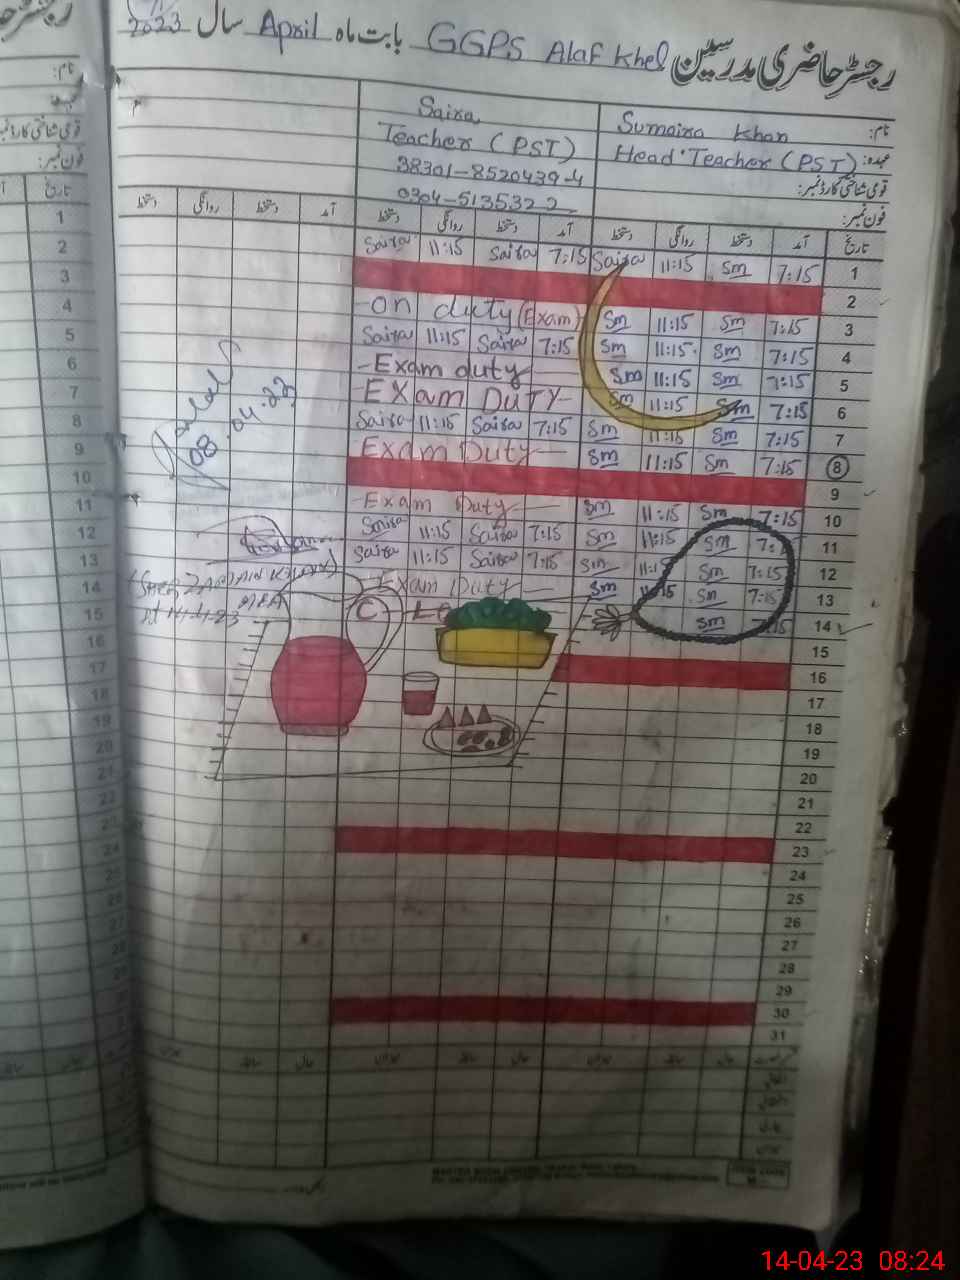 رجسٹر حاضری مدرسین GGPS Alaf Khel بابت ماہ April سال 2023
نام: Sumaira Khan Saira
عہدہ: Head Teacher (PST) Teacher (PST)
قومی شناختی کارڈ نمبر: 38301-8520439-4
فون نمبر: 0304-5135322
تاریخ آمد دستخط روانگی دستخط آمد دستخط روانگی دستخط آمد دستخط روانگی دستخط
1 7:15 Sm 11:15 Saira 7:15 Saira 11:15 Saira
2
3 7:15 Sm 11:15 Sm -on duty (Exam)
4 7:15 Sm 11:15 Sm 7:15 Saira 11:15 Saira
5 7:15 Sm 11:15 Sm -Exam duty
6 7:15 Sm 11:15 Sm EXam DUTY-
7 7:15 Sm 11:15 Sm 7:15 Saira 11:15 Saira
8 7:15 Sm 11:15 Sm Exam Duty-
9
10 7:15 Sm 11:15 Sm -Exam Duty-
11 Sm 11:15 Sm 7:15 Saira 11:15
12 7:15 Sm Sm 7:15 Saira 11:15 Saira
13 7:15 Sm Sm Exam Duty-
14 7:15 Sm
15
16
17
18
19
20
21
22
23
24
25
26
27
28
29
30
31
08.04.23
14-04-23 08:24